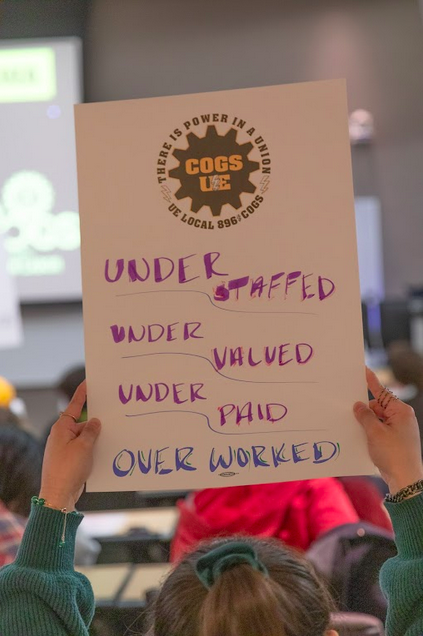 THERE IS POWER IN A UNION
COGS
UE
UE LOCAL 896/COGS
UNDER
STAFFED
UNDER
VALUED
UNDER
PAID
OVER WORKED